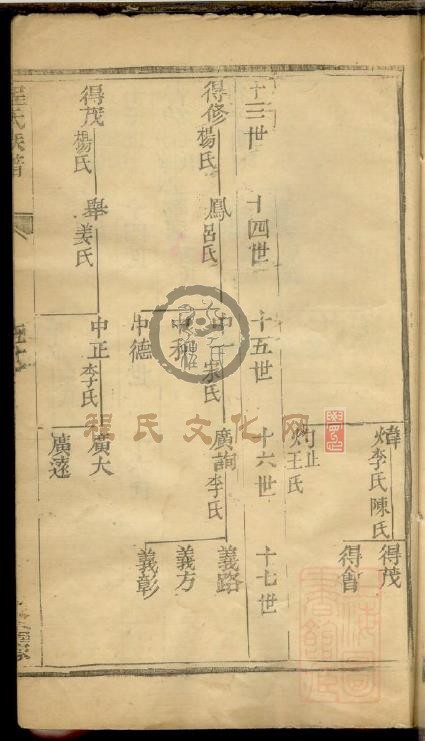 煒李氏陳氏
得茂
得會
灼王氏
止
十三世
十四世
十五世
十六世
十七世
得修楊氏
鳳呂氏
中一宋氏
廣詢李氏
義路
義方
義彰
中和
中德
得茂楊氏
舉姜氏
中正李氏
廣大
廣遠
程氏族譜
程氏文化网